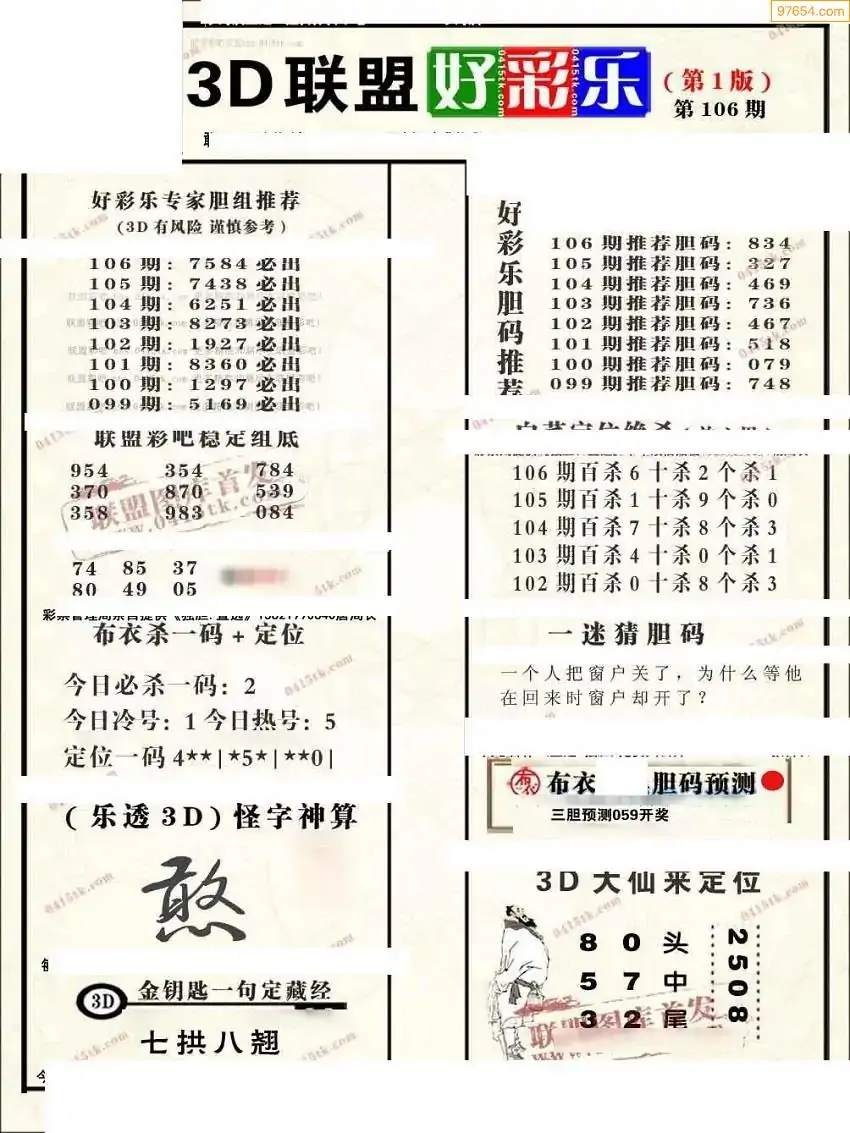 97654.com
3D联盟好彩乐
(第1版)
第106期
好彩乐专家胆组推荐
(3D有风险 谨慎参考)
106期:7584必出
105期:7438必出
104期:6251必出
103期:8273必出
102期:1927必出
101期:8360必出
100期:1297必出
099期:5169必出
联盟彩吧稳定组底
954 354 784
370 870 539
358 983 084
74 85 37
80 49 05
布衣杀一码+定位
今日必杀一码:2
今日冷号:1 今日热号:5
定位一码4**|*5*|**0|
(乐透3D)怪字神算
憨
3D 金钥匙一句定藏经
七拱八翘
好彩乐胆码推荐
106期推荐胆码:834
105期推荐胆码:327
104期推荐胆码:469
103期推荐胆码:736
102期推荐胆码:467
101期推荐胆码:518
100期推荐胆码:079
099期推荐胆码:748
106期百杀6十杀2个杀1
105期百杀1十杀9个杀0
104期百杀7十杀8个杀3
103期百杀4十杀0个杀1
102期百杀0十杀8个杀3
一迷猜胆码
一个人把窗户关了,为什么等他
在回来时窗户却开了?
布衣 布衣 胆码预测
三胆预测059开奖
3D大仙来定位
8 0 头
5 7 中
3 2 尾
2508
联盟图库首发
www.0415tk.com